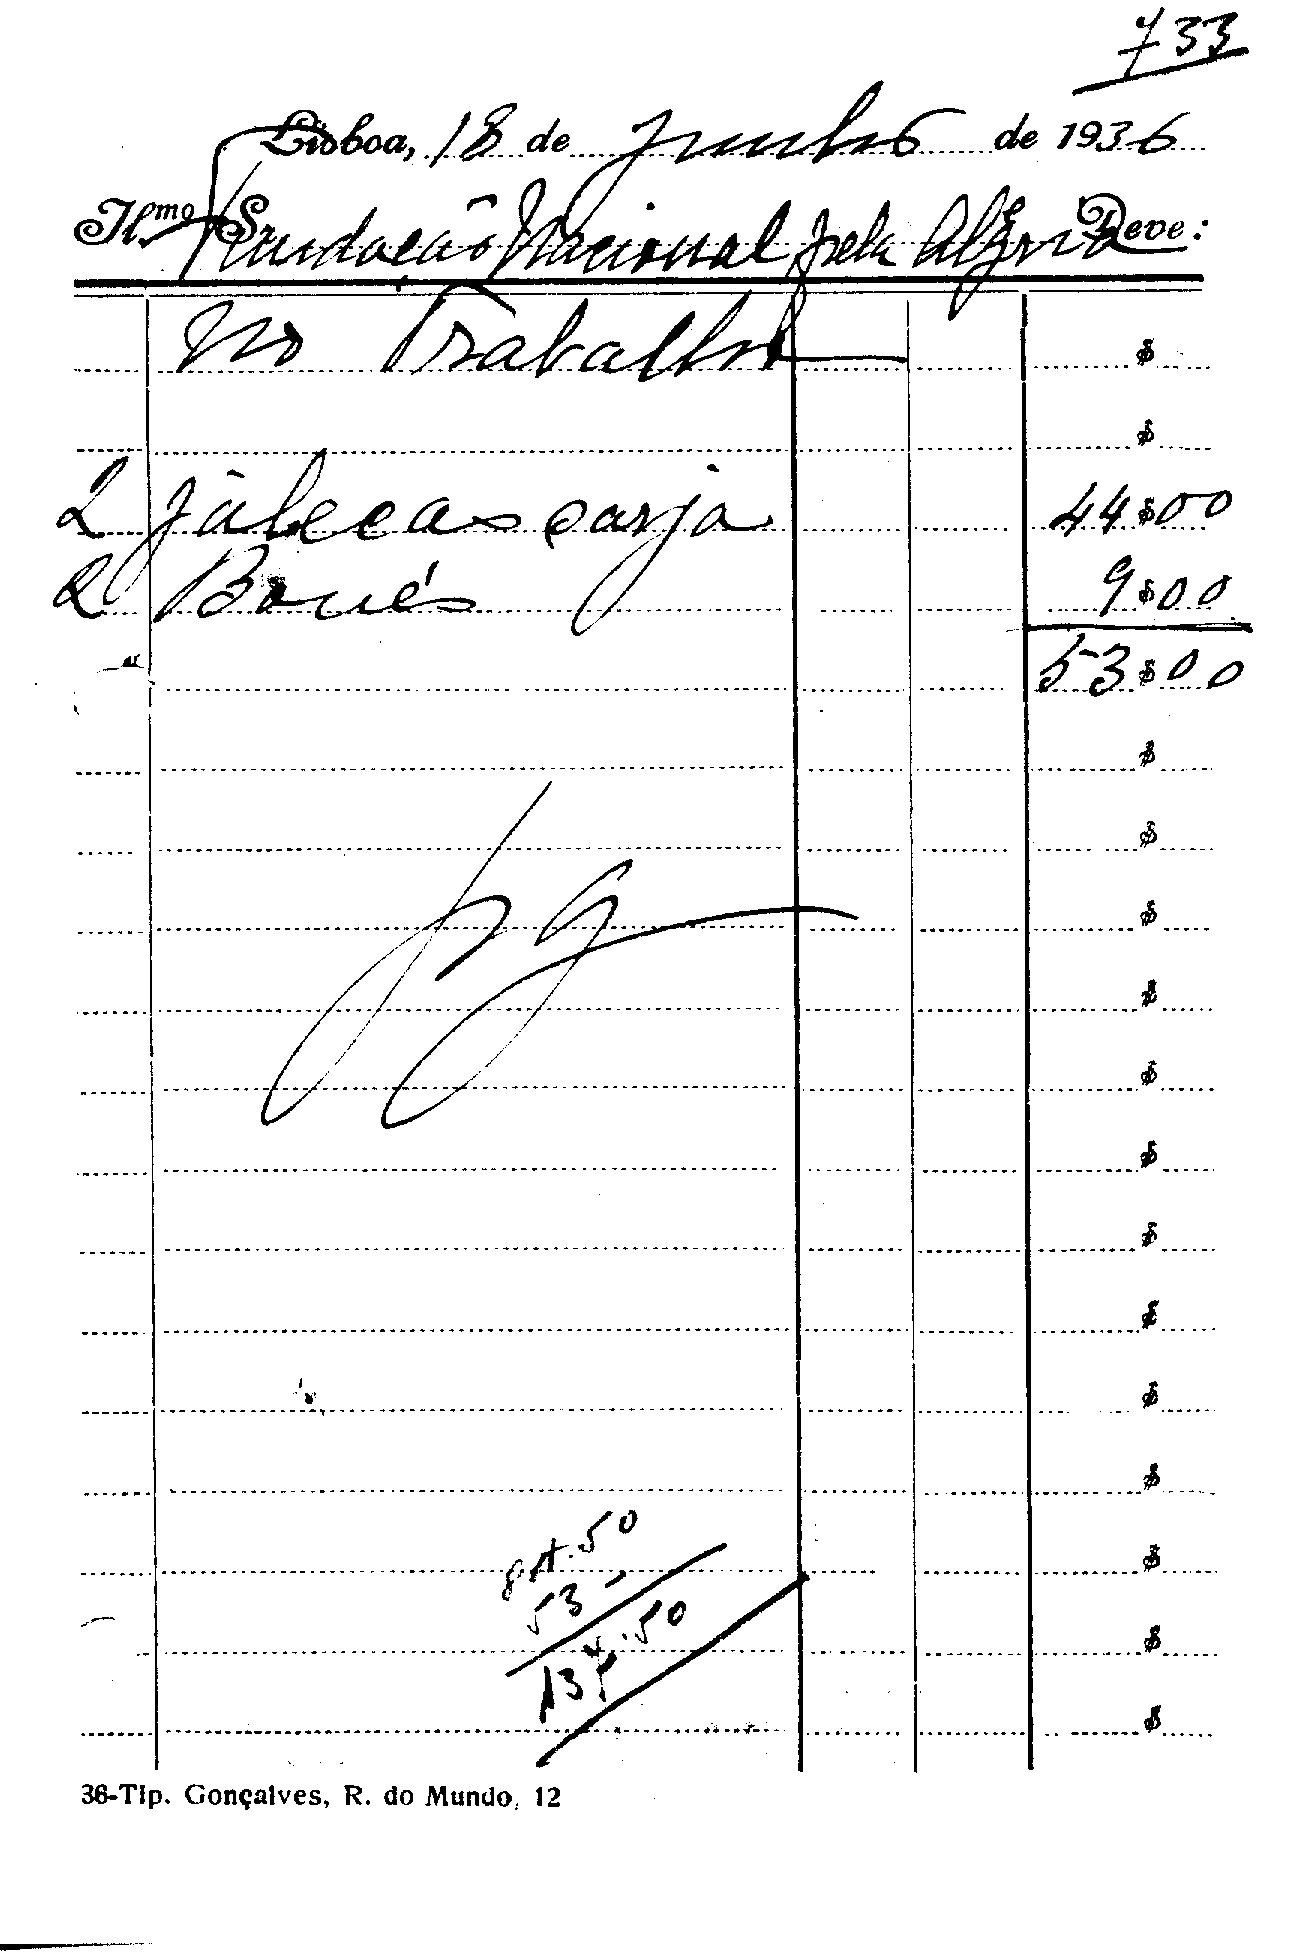 733
Lisboa, 18 de Junho de 1936
Il.mo Sr. Fundação Nacional pela Alegria Deve:
no Trabalho $
$
2 Jalecas sarja 44$00
2 Bonés 9$00
53$00
$
$
$
$
$
$
$
$
$
$
$
$
$
pg
50
53-
137.50
36-Tip. Gonçalves, R. do Mundo, 12